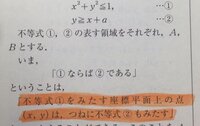 x²+y²≦1, …①
y≧x+a …②
不等式①, ②の表す領域をそれぞれ, A,
Bとする.
いま,
「①ならば②である」
ということは,
「不等式①をみたす座標平面上の点
(x, y)は, つねに不等式②もみたす」